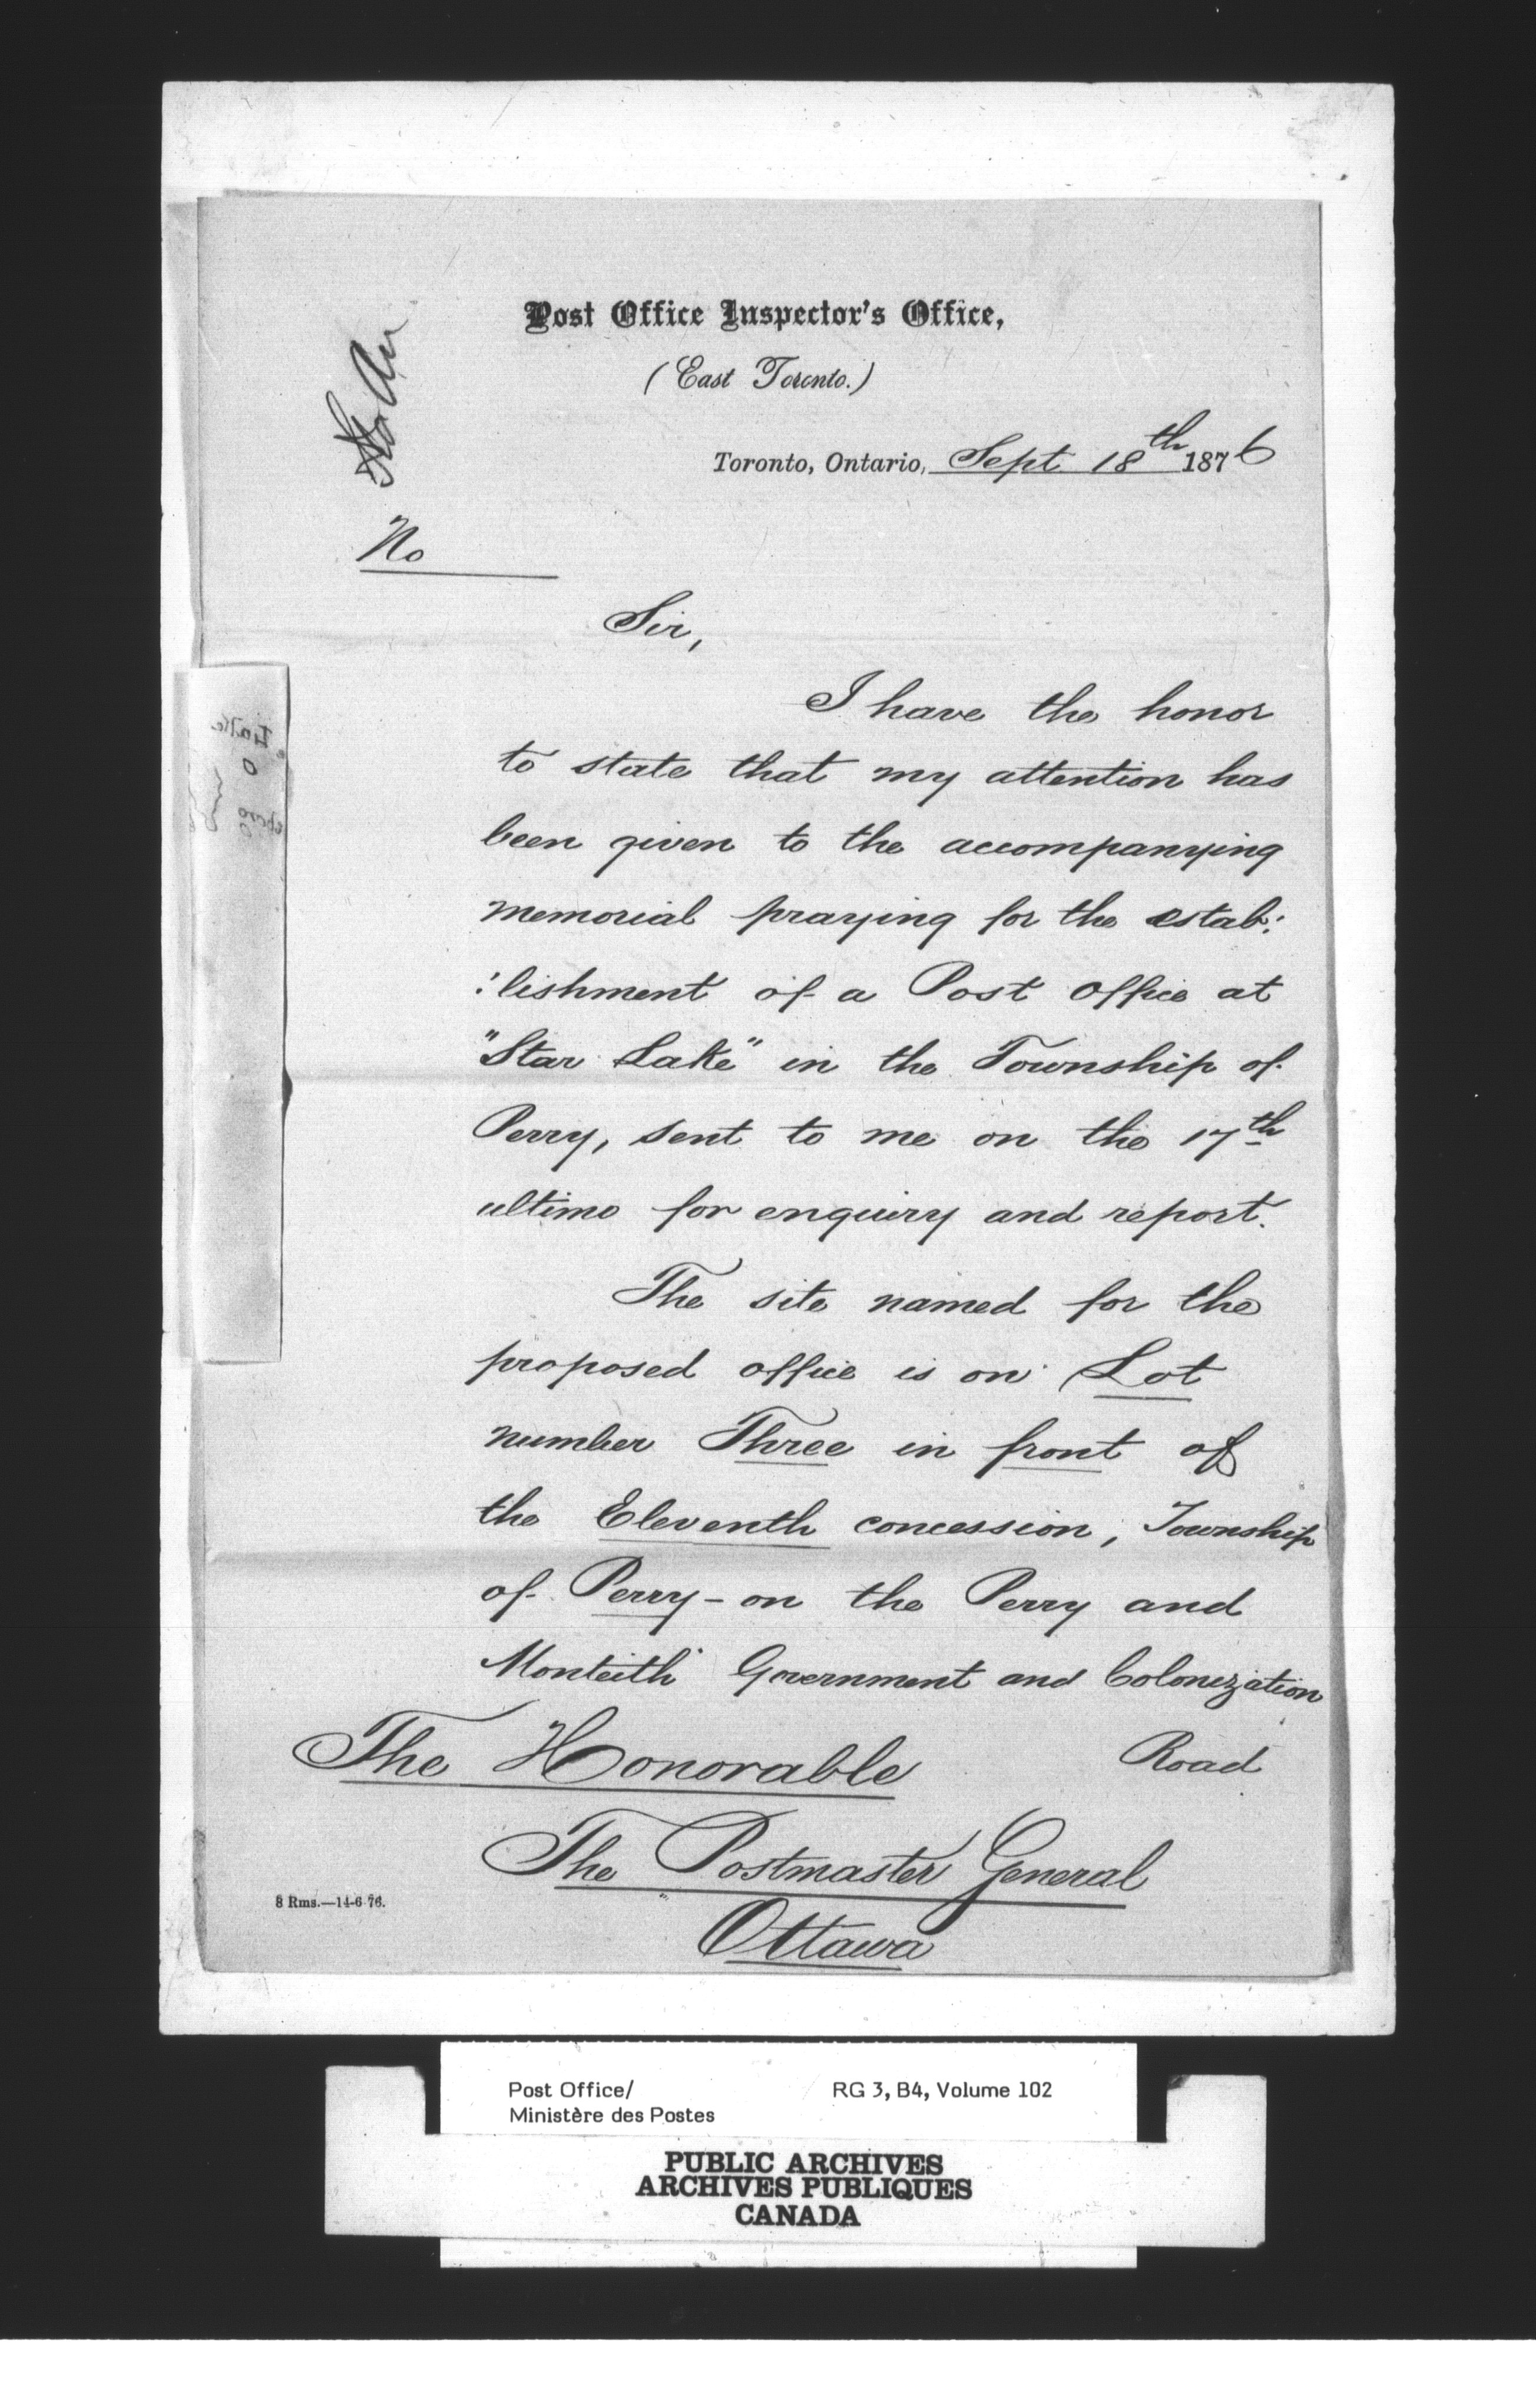 Post Office Inspector's Office,
(East Toronto.)
Toronto, Ontario, Sept 18th 1876
No
Sir,
I have the honor
to state that my attention has
been given to the accompanying
memorial praying for the estab:
:lishment of a Post Office at
"Star Lake" in the Township of
Perry, sent to me on the 17th
ultimo for enquiry and report.
The site named for the
proposed office is on Lot
number Three in front of
the Eleventh concession, Township
of Perry - on the Perry and
Monteith Government and Colonization
Road
The Honorable
The Postmaster General
Ottawa
8 Rms.—14-6 76.
Post Office/
Ministère des Postes
RG 3, B4, Volume 102
PUBLIC ARCHIVES
ARCHIVES PUBLIQUES
CANADA